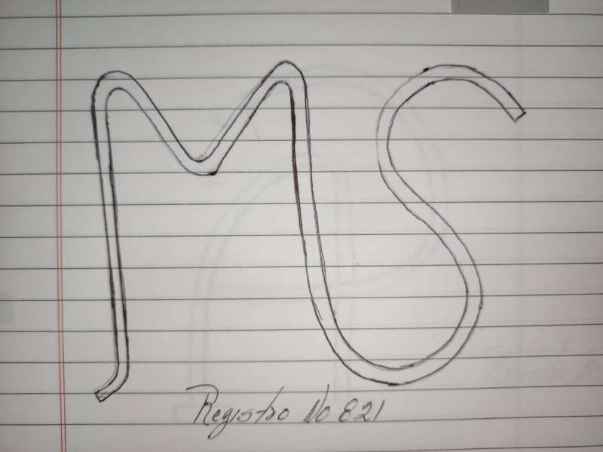 MS
Registro No 821